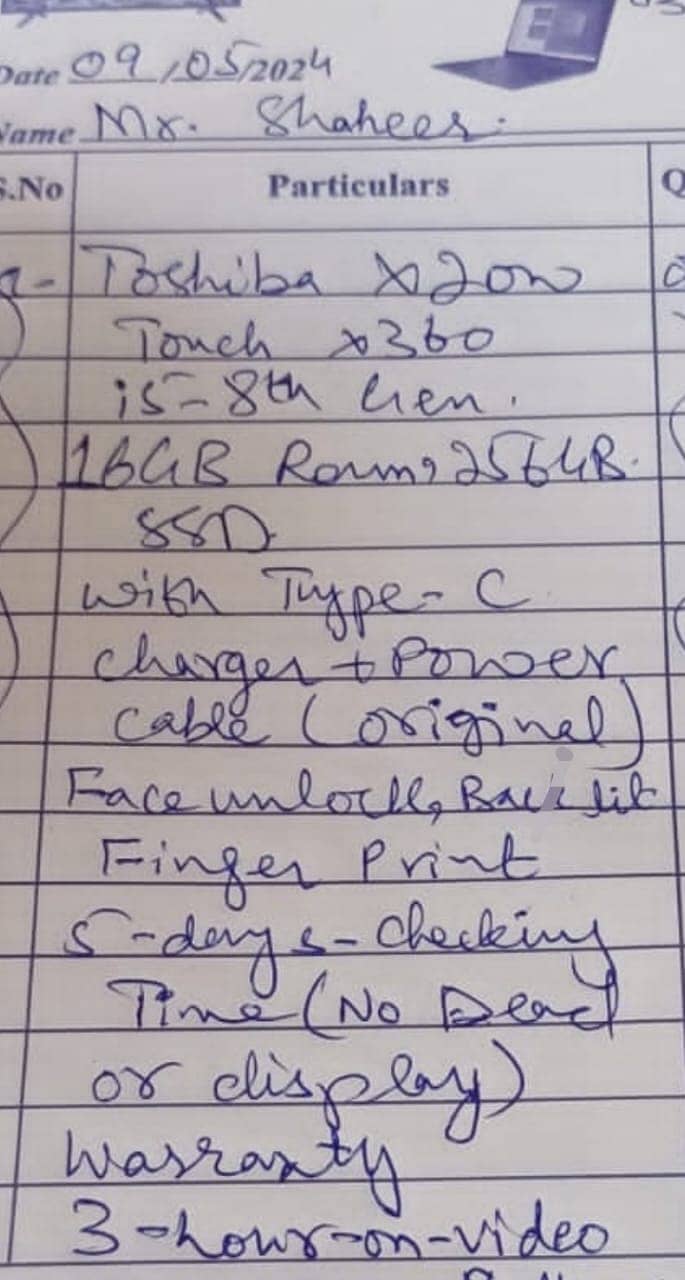 Date 09/05/2024
Name Mr. Shahees.
S.No Particulars Q
Toshiba X20W
Touch x360
i5-8th Gen.
16GB Ram, 256GB.
SSD
with Type-C
charger + Power
cable (original)
Face unlock, Back lit
Finger Print
5-days-checking
Time (No Dead
or display)
Warranty
3-hour-on-video